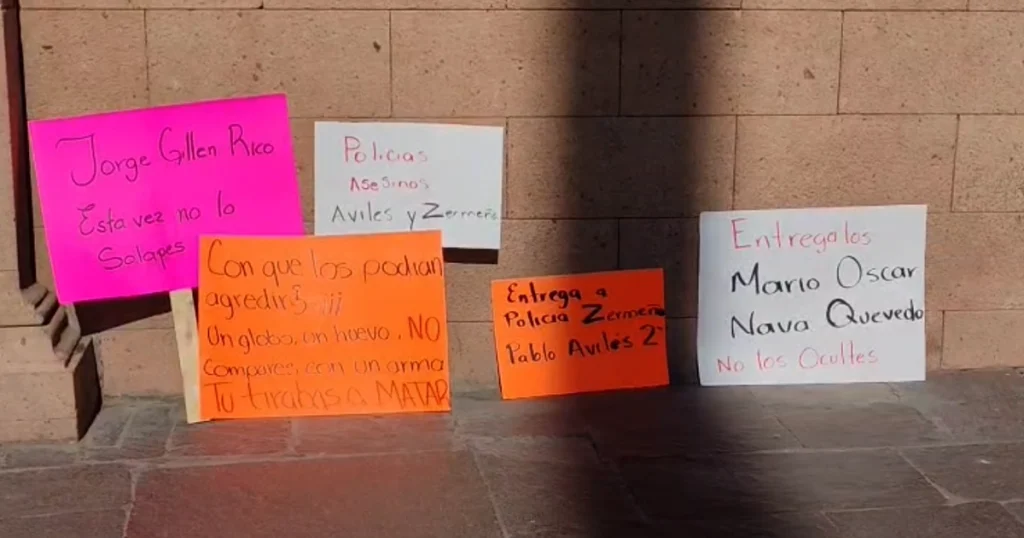 Jorge Gillen Rico
Esta vez no lo
Solapes
Policias
Asesinos
Aviles y Zermeño
Con que los podian
agredir
Un globo, un huevo, NO
Compares, con un arma
Tu tirabas a MATAR
Entrega a
Policia Zermeño
Pablo Aviles 2
Entregalos
Mario Oscar
Nava Quevedo
No los Ocultes